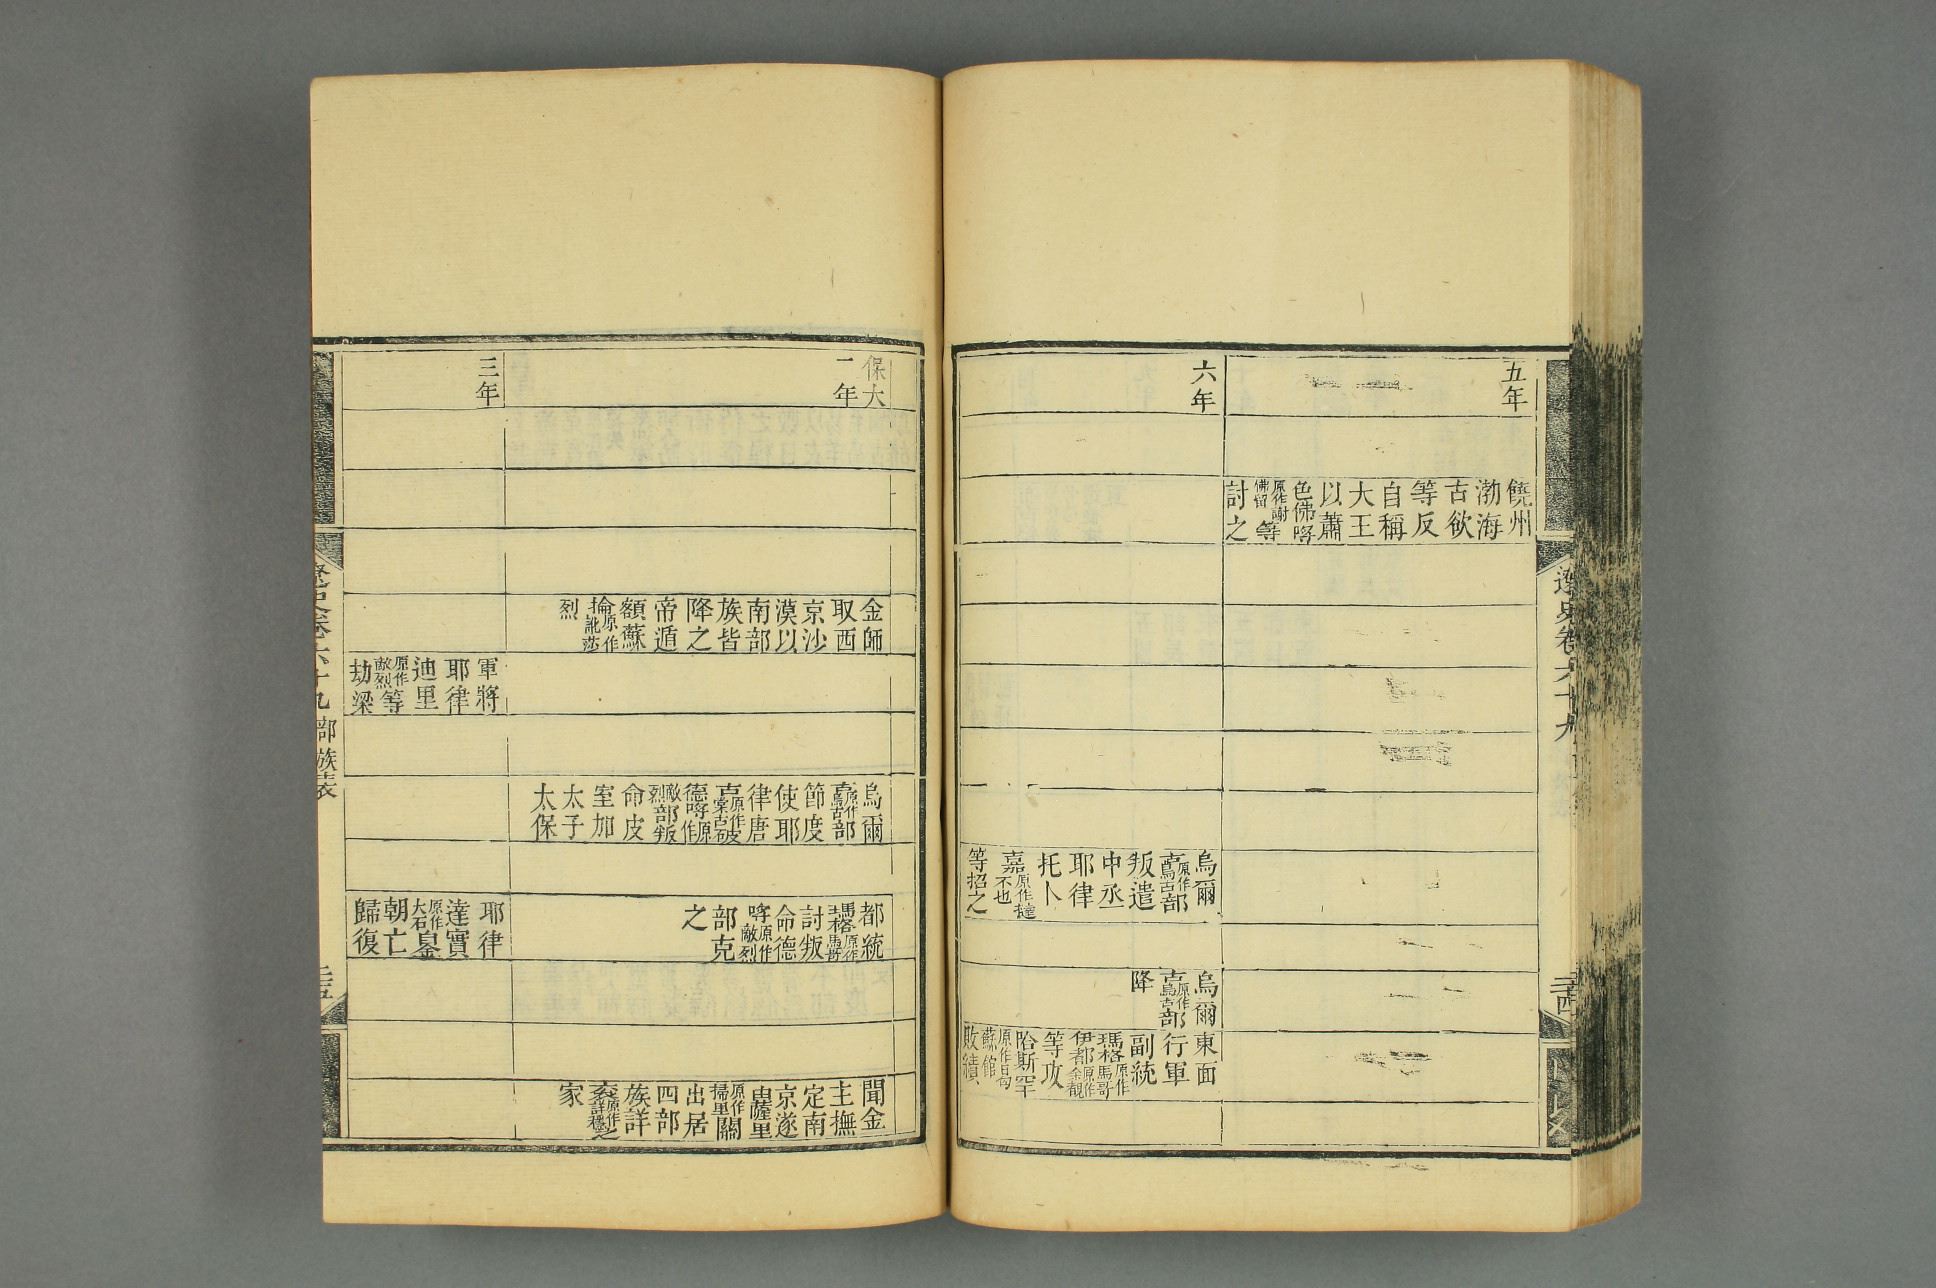 五年
饒州
渤海
古欲
等反
自稱
大王
以蕭
色佛喀
原作謝
佛留
等
討之
六年
烏爾
古原作烏古部
叛遣
中丞
耶律
托卜
嘉原作撻不也
等招之
烏爾
古原作烏古部
降
東面
行軍
副統
瑪格原作馬哥
伊都原作余覩
等攻
哈斯罕
原作曷
蘇館
敗績
遼史卷六十九
二十四
保大
二年
金師
取西
京沙
漠以
南部
族皆
降之
帝遁
額蘇
掄原作訛莎
烈
烏爾
古原作烏古部
節度
使耶
律唐
古原作棠古破
德哷原作
敵烈部叛
命皮
室加
太子
太保
都統
瑪格原作馬哥
討叛
命德
哷原作敵烈
部克
之
聞金
主撫
定南
京遂
由薩里
原作掃里關
出居
四部
族詳
袞原作詳穩之
家
三年
軍將
耶律
迪里
原作敵烈等
劫梁
耶律
達實
原作大石自金
朝亡
歸復
遼史卷六十九
部族表
二十五